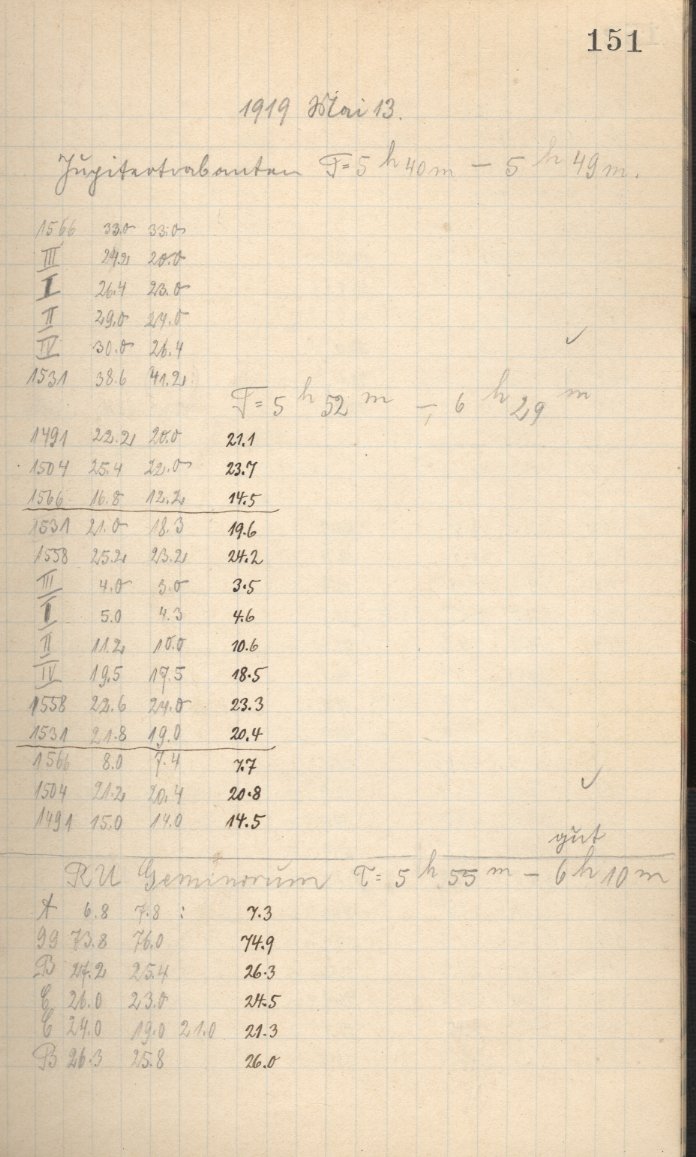 151
1919 Mai 13.
Jupitertrabanten T= 5 h 40 m – 5 h 49 m.
1566 33.0 33.0
III 24.2 20.0
I 26.4 23.0
II 29.0 24.0
IV 30.0 26.4
1531 38.6 41.2
T= 5 h 52 m – 6 h 29 m
1491 22.2 20.0 21.1
1504 25.4 22.0 23.7
1566 16.8 12.2 14.5
1531 21.0 18.3 19.6
1558 25.2 23.2 24.2
III 4.0 3.0 3.5
I 5.0 4.3 4.6
II 11.2 10.0 10.6
IV 19.5 17.5 18.5
1558 22.6 24.0 23.3
1531 21.8 19.0 20.4
1566 8.0 7.4 7.7
1504 21.2 20.4 20.8
1491 15.0 14.0 14.5
gut
RU Geminorum T= 5 h 55 m – 6 h 10 m
A 6.8 7.8 : 7.3
99 73.8 76.0 74.9
B 27.2 25.4 26.3
C 26.0 23.0 24.5
C 24.0 19.0 21.0 21.3
B 26.3 25.8 26.0